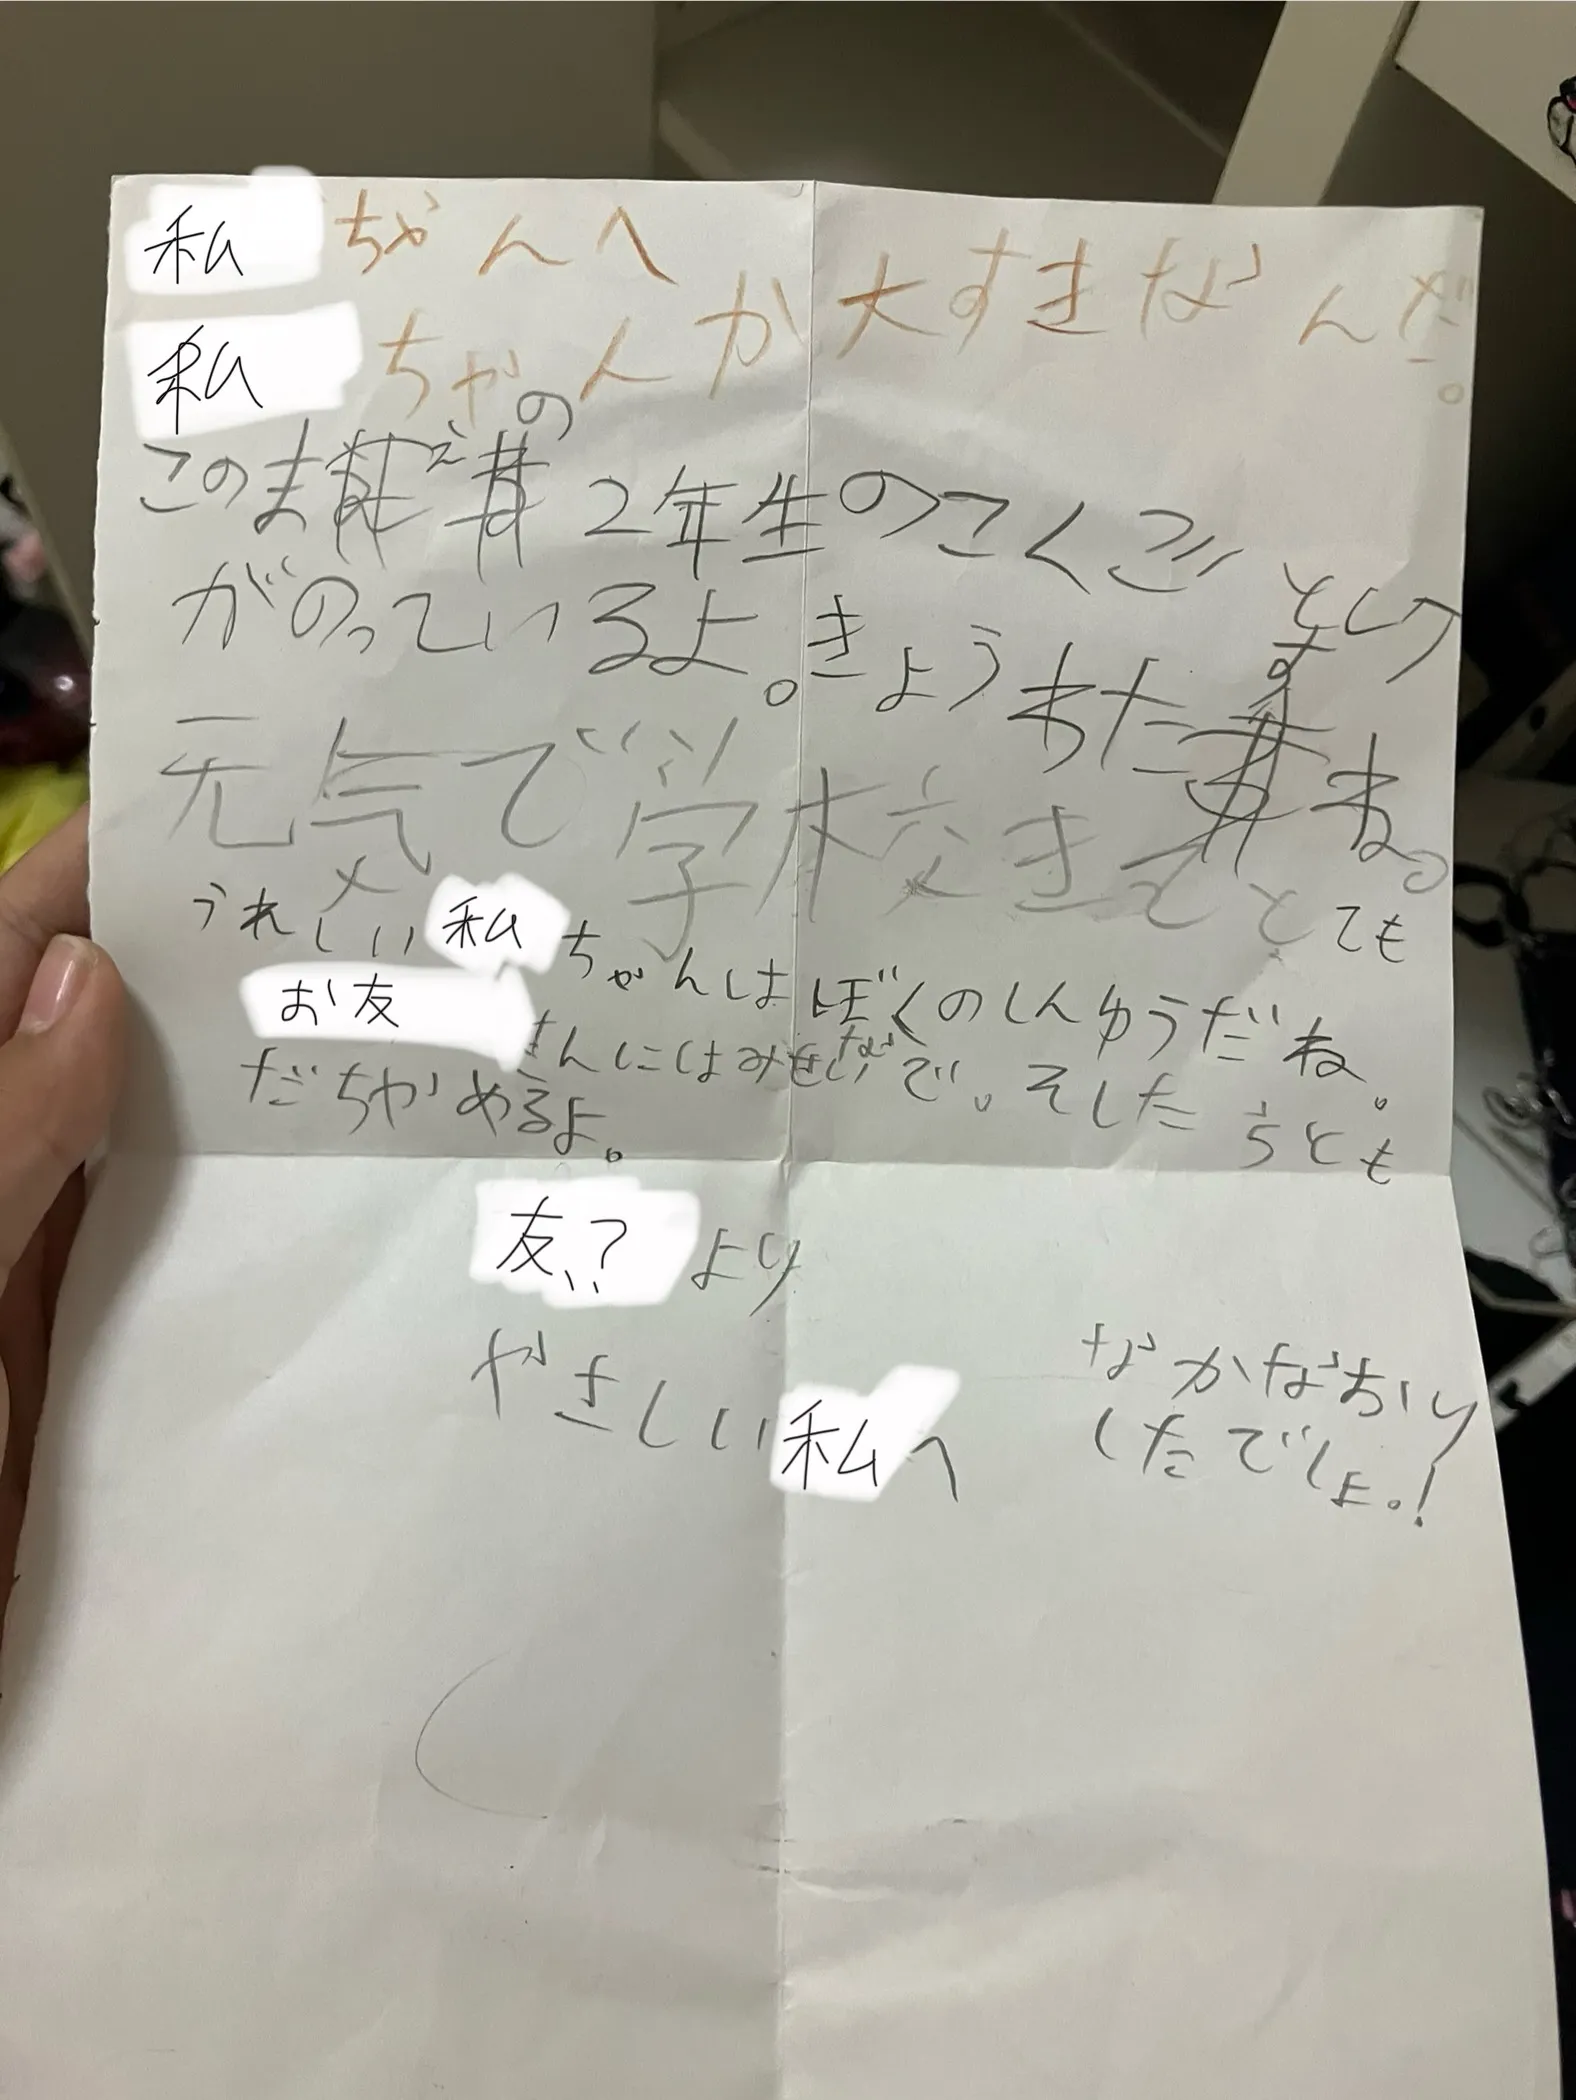 私ちゃんへ
私ちゃんか大すきなんだ。
このまえの2年生のこくごとしょ
がのっているよ。きょうわたすね。
元気で学校きてとても
うれしい私ちゃんはぼくのしんゆうだね。
お友さんにはみせないで。そしたらとも
だちやめるよ。
友、、?より
やさしい私へ
なかなおり
したでしょ。!